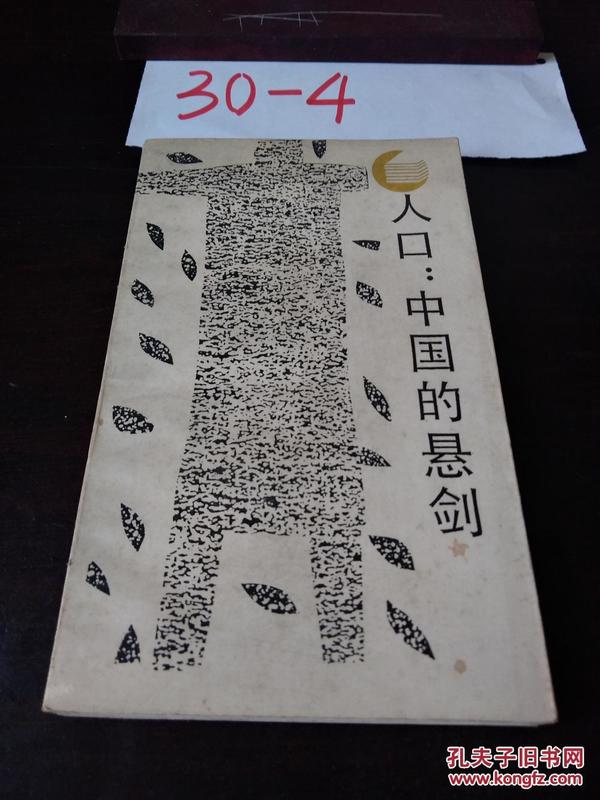 30-4
人口：中国的悬剑
孔夫子旧书网
www.kongfz.com